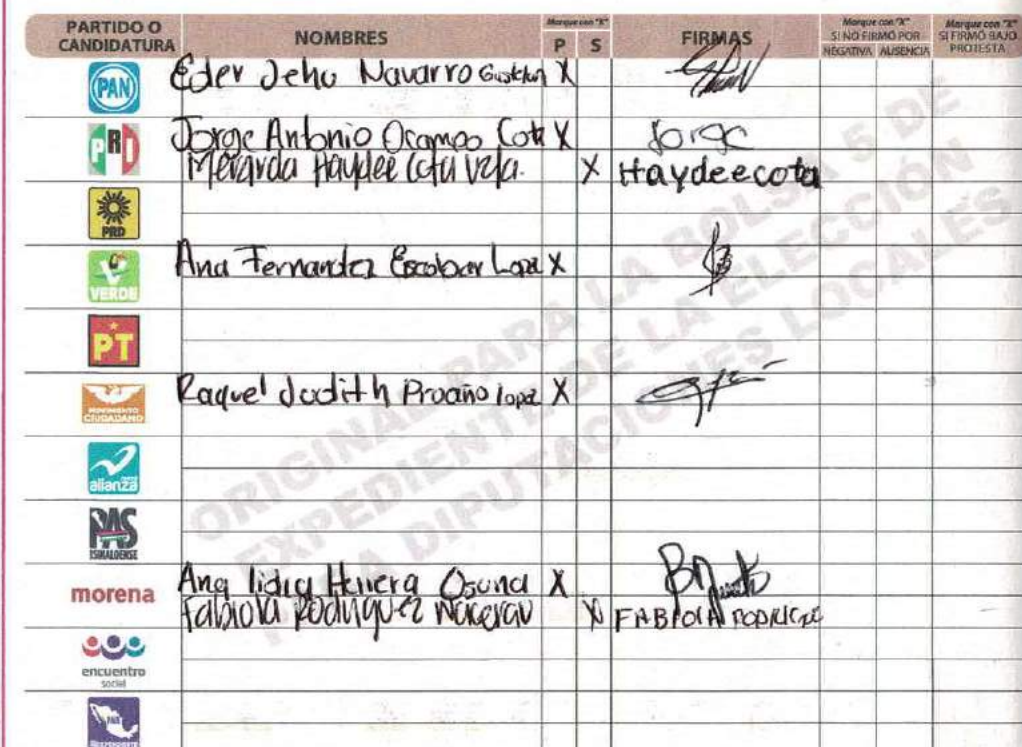 PARTIDO O CANDIDATURA NOMBRES Marque con "X" P S FIRMAS Marque con "X" SI NO FIRMÓ POR NEGATIVA AUSENCIA Marque con "X" SI FIRMÓ BAJO PROTESTA
PAN Eder Jehu Navarro X
PRI Jorge Antonio Ocampo Cota X Jorge
Haydee Cota X Haydee cota
PRD
VERDE Ana Fernanda Escobar X
PT
MOVIMIENTO CIUDADANO Raquel Judith Proaño lopez X
alianza
PAS SINALOENSE
morena Ana lidia Herrera Osuna X
Fabiola Rodriguez X FABIOLA RODRIGUEZ
encuentro social
ORIGINAL PARA LA BOLSA 5 DE
EXPEDIENTE DE LA ELECCIÓN
DIPUTACIONES LOCALES